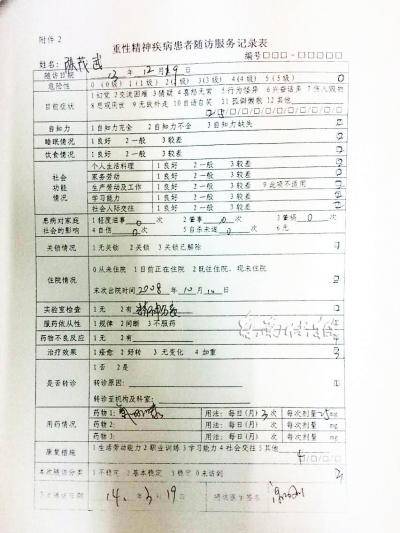 附件 2
重性精神疾病患者随访服务记录表
姓名: 陈茂武 编号□□□-□□□□□
随访日期 13 年 12 月 19 日
危险性 0 (0级) 1 (1级) 2 (2级) 3 (3级) 4 (4级) 5 (5级) 0
目前症状 1 幻觉 2 交流困难 3 猜疑 4 喜怒无常 5 行为怪异 6 兴奋话多 7 伤人毁物
8 悲观厌世 9 无故外走 10 自语自笑 11 孤僻懒散 12 其他
自知力 1 自知力完全 2 自知力不全 3 自知力缺失
睡眠情况 1 良好 2 一般 3 较差
饮食情况 1 良好 2 一般 3 较差
社会功能情况 个人生活料理 1 良好 2 一般 3 较差
家务劳动 1 良好 2 一般 3 较差
生产劳动及工作 1 良好 2 一般 3 较差 9 此项不适用
学习能力 1 良好 2 一般 3 较差
社会人际交往 1 良好 2 一般 3 较差
患病对家庭社会的影响 1 轻度滋事 0 次 2 肇事 0 次 3 肇祸 0 次
4 自伤 0 次 5 自杀未遂 0 次 6 无
关锁情况 1 无关锁 2 关锁 3 关锁已解除
住院情况 0 从未住院 1 目前正在住院 2 既往住院，现未住院
末次出院时间 2008 年 10 月 10 日
实验室检查 1 无 2 有
服药依从性 1 规律 2 间断 3 不服药
药物不良反应 1 无 2 有
治疗效果 1 痊愈 2 好转 3 无变化 4 加重 3
是否转诊 1 否 2 是
转诊原因:
转诊至机构及科室:
用药情况 药物 1: 用法: 每日(月) 3 次 每次剂量 25 mg
药物 2: 用法: 每日(月) 次 每次剂量 mg
药物 3: 用法: 每日(月) 次 每次剂量 mg
康复措施 1 生活劳动能力 2 职业训练 3 学习能力 4 社会交往 5 其他 4
本次随访分类 1 不稳定 2 基本稳定 3 稳定 0 未访到 3
下次随访日期 14. 年 3 月 19 日 随访医生签名